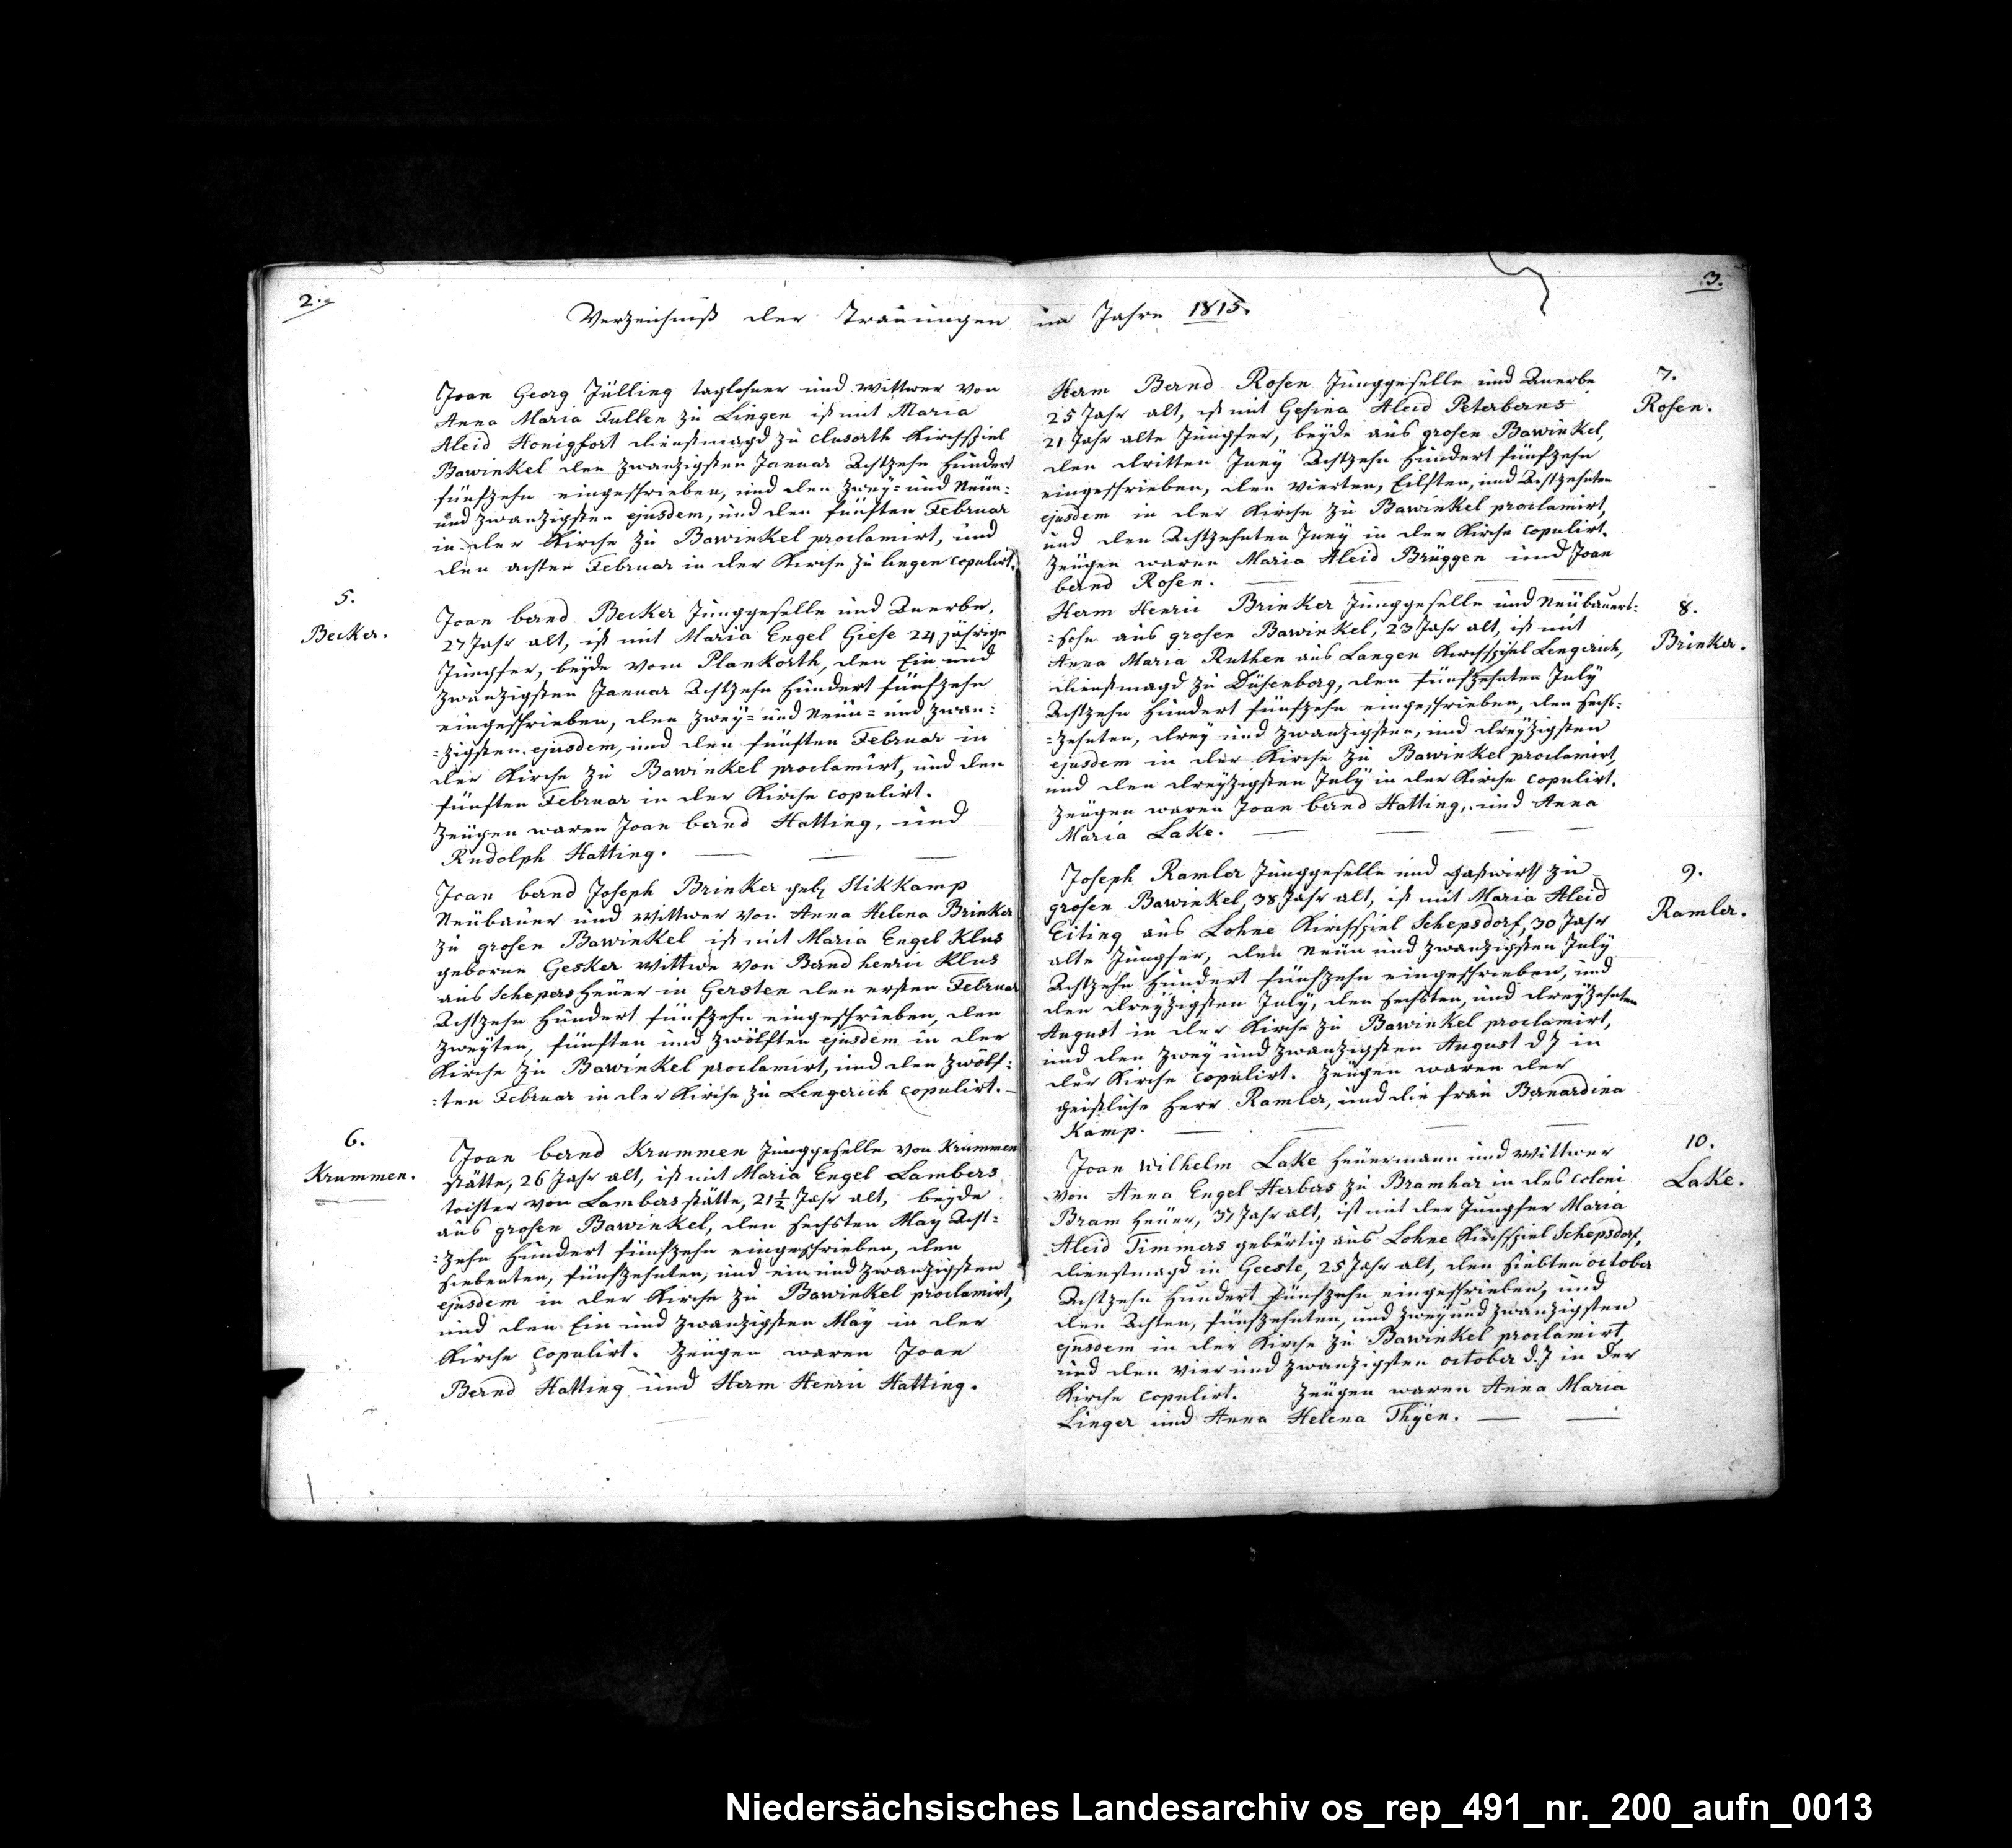 2.
Verzeichniß der Trauungen im Jahre 1815.
3.
Joan Georg Jülling taglohner und wittwer von
Anna Maria Fullen zu Lingen ist mit Maria
Aleid Honigfort dienstmagd zu clusorth Kirchspiel
Bawinkel den zwanzigsten Januar Achtzehn Hundert
fünfzehn eingeschrieben, und den zwey= und Neun=
und zwanzigsten ejusdem, und den fünften Februar
in der Kirche zu Bawinkel proclamirt, und
den achten Februar in der Kirche zu lingen copulirt.
5.
Becker.
Joan bernd Becker Junggeselle und Anerbe,
27 Jahr alt, ist mit Maria Engel Giese 24 jährige
Jungfer, beyde vom Plankorth, den Ein und
zwanzigsten Januar Achtzehn Hundert fünfzehn
eingeschrieben, den zwey= und Neun= und zwan=
=zigsten ejusdem, und den fünften Februar in
der Kirche zu Bawinkel proclamirt, und den
fünften Februar in der Kirche copulirt.
Zeugen waren Joan bernd Hatting, und
Rudolph Hatting.
Joan bernd Joseph Brinker geb. Stikkamp
Neubauer und wittwer von Anna Helena Brinker
zu grosen Bawinkel ist mit Maria Engel Klus
geborne Gesker wittwe von Bernd henric Klus
aus Schepers Heuer in Gersten den ersten Februar
Achtzehn Hundert fünfzehn eingeschrieben, den
zweyten, fünften und zwölften ejusdem in der
Kirche zu Bawinkel proclamirt, und den zwölf=
=ten Februar in der Kirche zu Lengerich copulirt.
6.
Krummen.
Joan bernd Krummen Junggeselle von Krummen
stätte, 26 Jahr alt, ist mit Maria Engel Lambers
tochter von Lambers stätte, 21½ Jahr alt, beyde
aus grosen Bawinkel, den sechsten May Acht=
=zehn Hundert fünfzehn eingeschrieben, den
siebenten, fünfzehnten, und ein und zwanzigsten
ejusdem in der Kirche zu Bawinkel proclamirt,
und den Ein und zwanzigsten May in der
Kirche copulirt. Zeugen waren Joan
Bernd Hatting und Herm Henric Hatting.
7.
Rosen.
Herm Bernd Rosen Junggeselle und Anerbe
25 Jahr alt, ist mit Gesina Aleid Peterberns
21 Jahr alte Jungfer, beyde aus grosen Bawinkel,
den dritten Juny Achtzehn Hundert fünfzehn
eingeschrieben, den vierten, Eilften, und Achtzehnten
ejusdem in der Kirche zu Bawinkel proclamirt,
und den Achtzehnten Juny in der Kirche copulirt.
Zeugen waren Maria Aleid Brüggen und Joan
bernd Rosen.
8.
Brinker.
Herm Henric Brinker Junggeselle und Neubauers=
=sohn aus grosen Bawinkel, 23 Jahr alt, ist mit
Anna Maria Ruthen aus Langen Kirchspiel Lengerich,
dienstmagd zu Düsenborg, den fünfzehnten July
Achtzehn Hundert fünfzehn eingeschrieben, den sechs=
=zehnten, drey und zwanzigsten, und dreyzigsten
ejusdem in der Kirche zu Bawinkel proclamirt,
und den dreyzigsten July in der Kirche copulirt.
Zeugen waren Joan bernd Hatting, und Anna
Maria Lake.
9.
Ramler.
Joseph Ramler Junggeselle und gastwirth zu
grosen Bawinkel, 38 Jahr alt, ist mit Maria Aleid
Eiting aus Lohne Kirchspiel Schepsdorf, 30 Jahr
alte Jungfer, den Neun und zwanzigsten July
Achtzehn Hundert fünfzehn eingeschrieben, und
den dreyzigsten July, den sechsten, und dreyzehnten
August in der Kirche zu Bawinkel proclamirt,
und den zwey und zwanzigsten August d J in
der Kirche copulirt. Zeugen waren der
geistliche Herr Ramler, und die frau Bernardina
Kamp.
10.
Lake.
Joan wilhelm Lake Heuermann und Wittwer
von Anna Engel Herbers zu Bramhar in des coloni
Bram Heuer, 37 Jahr alt, ist mit der Jungfer Maria
Aleid Timmers gebürtig aus Lohne Kirchspiel Schepsdorf,
dienstmagd in Geeste, 25 Jahr alt, den siebten october
Achtzehn Hundert fünfzehn eingeschrieben, und
den Achten, fünfzehnten, und zwey und zwanzigsten
ejusdem in der Kirche zu Bawinkel proclamirt,
und den vier und zwanzigsten october d. J in der
Kirche copulirt. Zeugen waren Anna Maria
Linger und Anna Helena Thÿen.
Niedersächsisches Landesarchiv os_rep_491_nr._200_aufn_0013